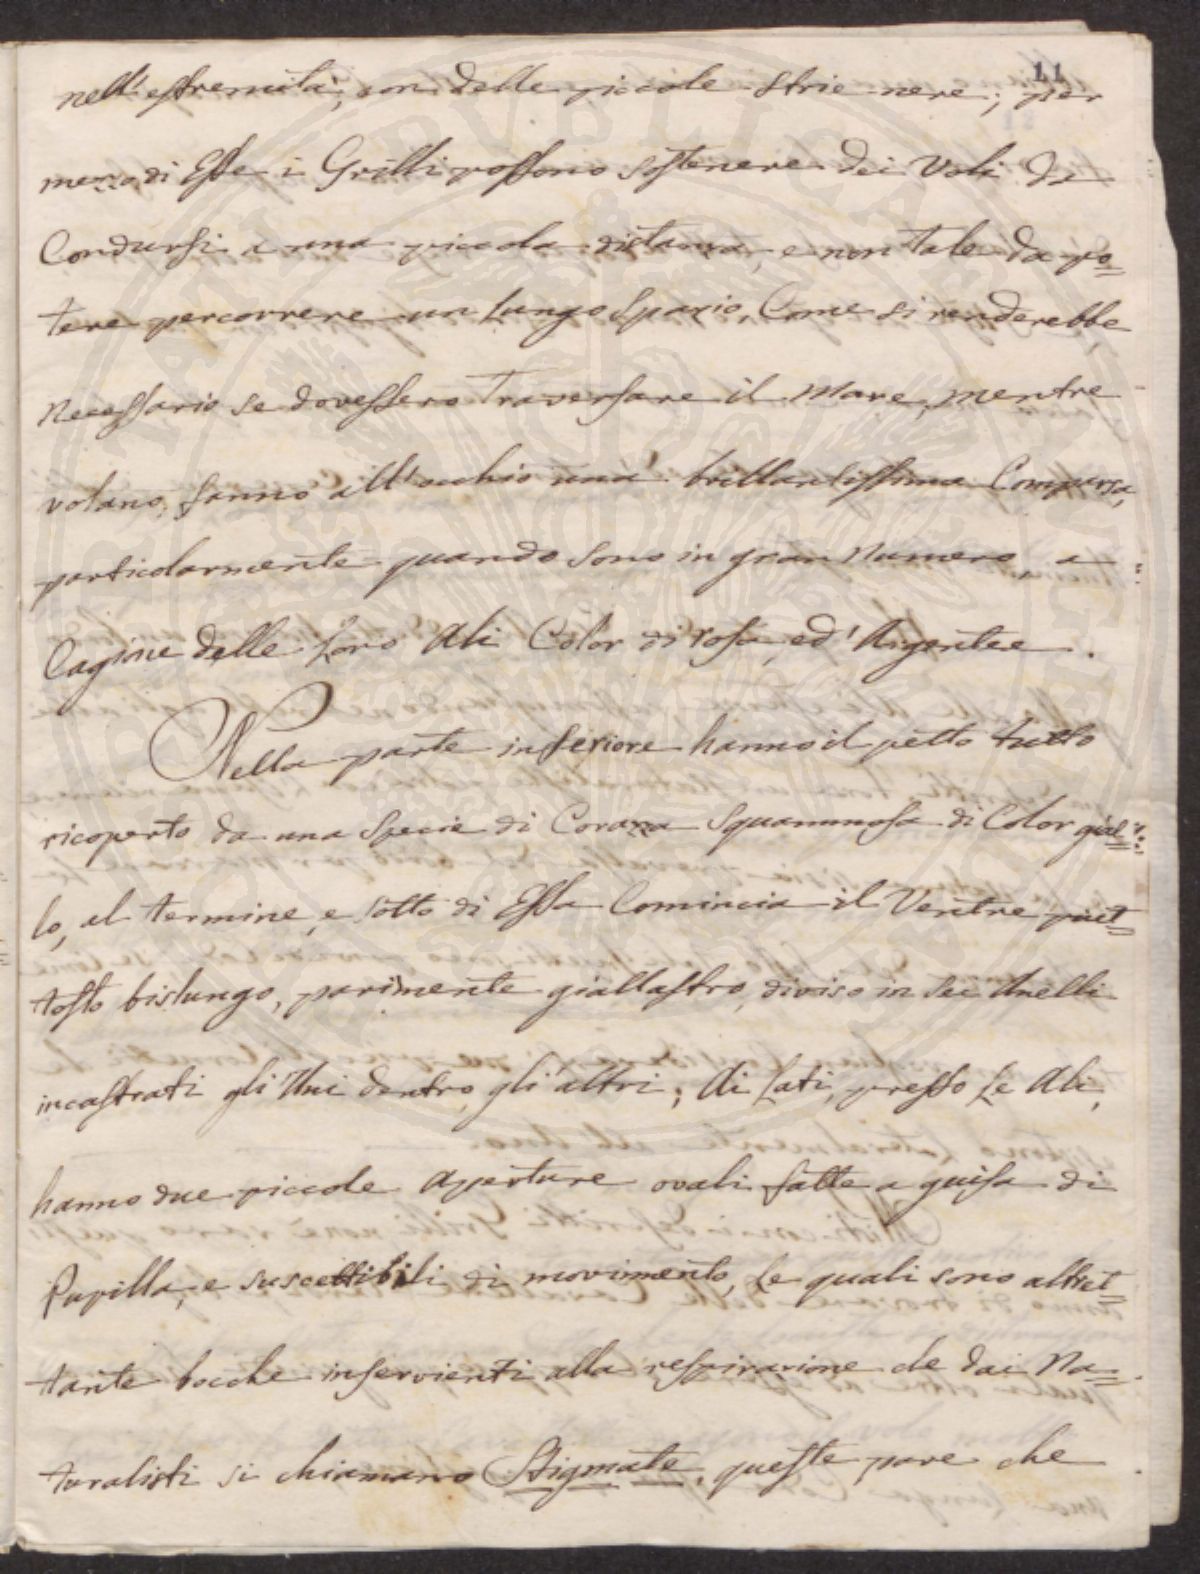 11
nell'estremità, con delle piccole strie nere; per
mezzo di Esse i Grilli possono sostenere dei Voli da
Condursi a una piccola distanza, e non tale da po=
tere percorrere un Lungo Spazio, Come si renderebbe
Necessario se dovessero Traversare il Mare, mentre
volano, fanno all'occhio una brillantissima Comparsa,
particolarmente quando sono in gran Numero, a
Cagione delle Loro Ali Color di rosa, ed' Argentee.
Nella parte inferiore hanno il petto tutto
ricoperto da una Specie di Corazza Squammosa di Color gial=
lo, al termine, e sotto di Essa Comincia il Ventre piut=
tosto bislungo, parimente giallastro, diviso in sei Anelli
incastrati gli Uni dentro gli altri; Ai Lati, presso Le Ali,
hanno due piccole Aperture ovali fatte a guisa di
Pupilla, e suscettibili di movimento, Le quali sono altret=
tante bocche inservienti alla respirazione che dai Na=
turalisti si chiamano Stigmate, queste pare che